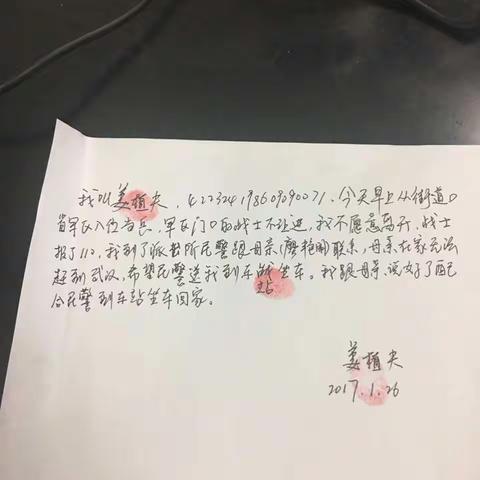 我叫姜植夫，422324198609090071，今天早上从街道口
省军区入伍当兵，军区门口的战士不让进，我不愿意离开，战士
报了110，我到了派出所民警跟母亲（廖艳刚联系，母亲在家无法
赶到武汉，希望民警送我到车站坐车。我跟母亲说好了配
合民警到车站坐车回家。
姜植夫
2017.1.26